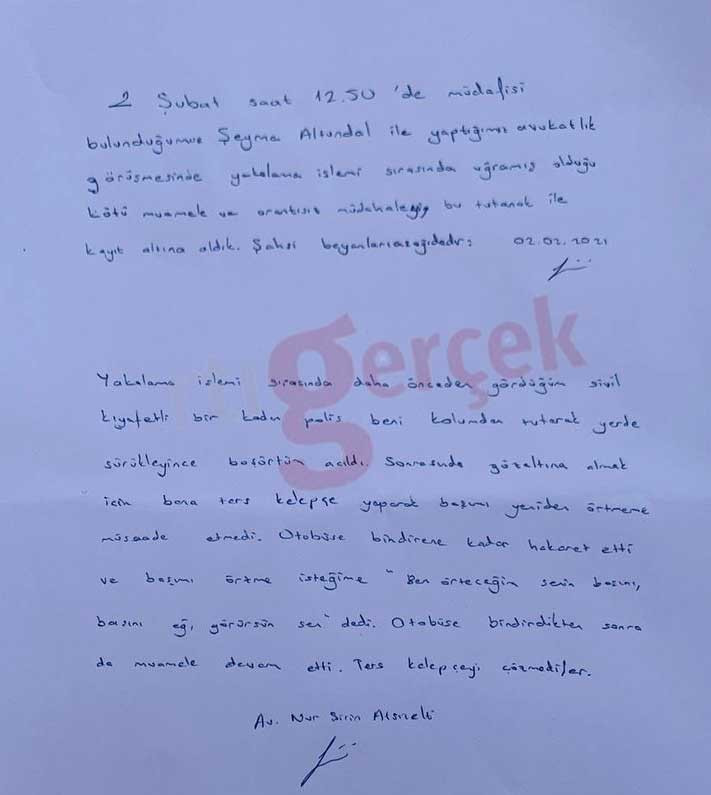 2 Şubat saat 12.50 'de müdafisi
bulunduğumuz Şeyma Altundal ile yaptığımız avukatlık
görüşmesinde yakalama işlemi sırasında uğramış olduğu
kötü muamele ve orantısız müdahaleyi bu tutanak ile
kayıt altına aldık. Şahsi beyanları aşağıdadır: 02.02.2021
gerçek
Yakalama işlemi sırasında daha önceden gördüğüm sivil
kıyafetli bir kadın polis beni kolumdan tutarak yerde
sürükleyince başörtüm açıldı. Sonrasında gözaltına almak
için bana ters kelepçe yaparak başımı yeniden örtmeme
müsaade etmedi. Otobüse bindirene kadar hakaret etti
ve başımı örtme isteğime "Ben örteceğim senin başını,
başını eğ, görürsün sen" dedi. Otobüse bindirdikten sonra
da muamele devam etti. Ters kelepçeyi çözmediler.
Av. Nur Sirin